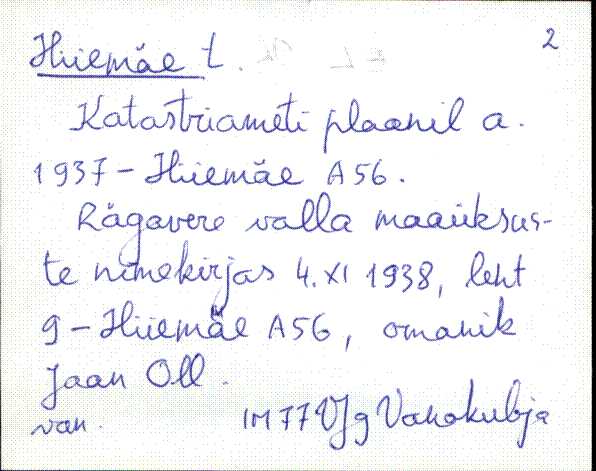 2
Hiiemäe t.
Katastriameti plaanil a.
1937 - Hiiemäe A56.
Rägavere valla maaüksus-
te nimekirjas 4. XI 1938, leht
9 - Hiiemäe A56, omanik
Jaan Oll.
van. IM77 VJg Vanakubja